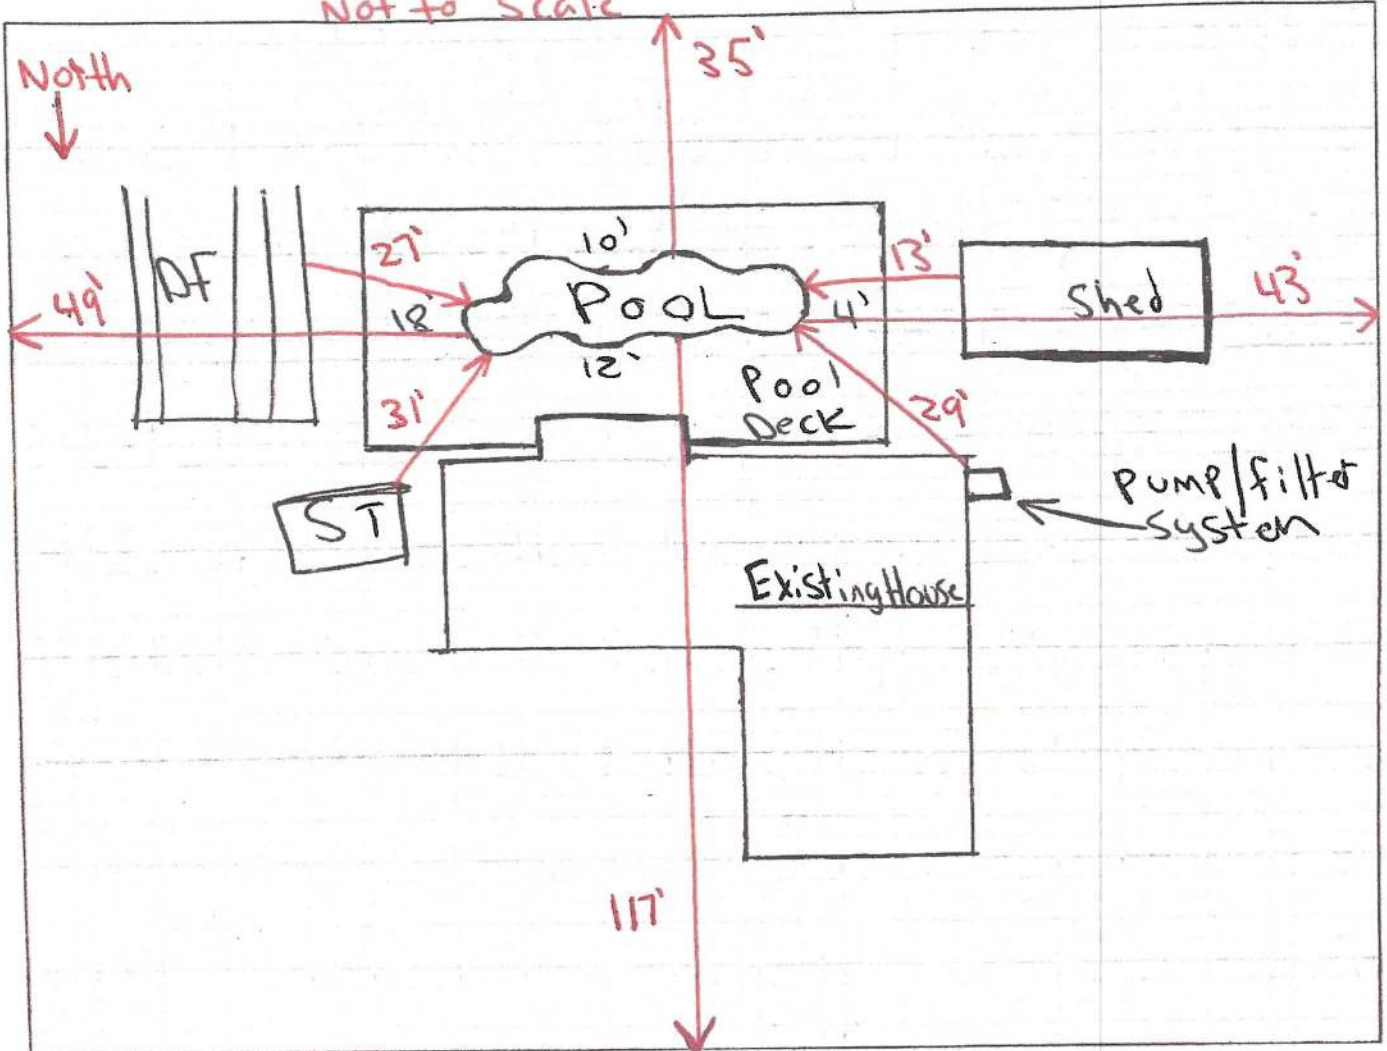 Not to Scale
35'
North
27'
10'
13'
DF
49'
18'
POOL
4'
Shed
43'
12'
31'
Pool
Deck
29'
ST
Pump/filter
System
Existing House
117'